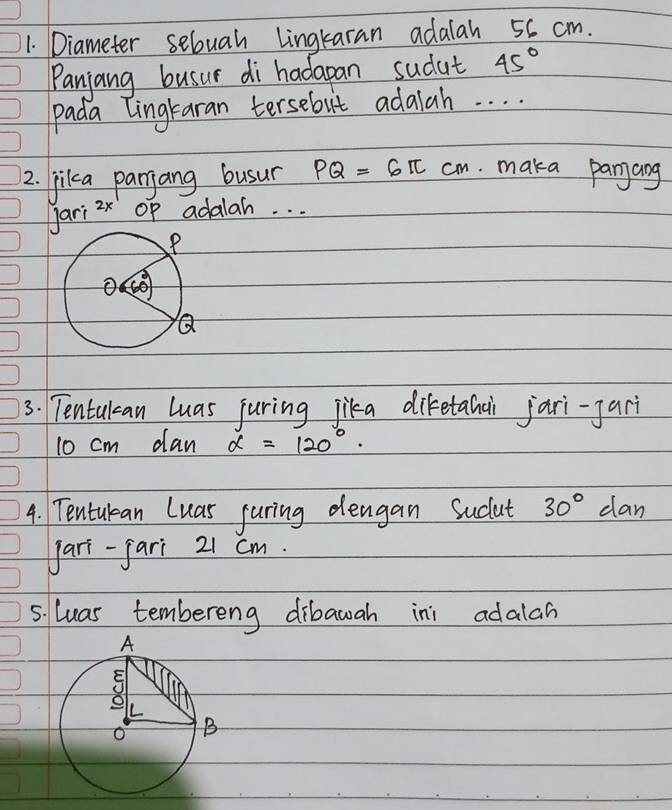 1. Diameter sebuah lingkaran adalah 56 cm.
Panjang busur di hadapan sudut 45°
pada lingkaran tersebut adalah ....
2. jika panjang busur PQ = 6π cm. maka panjang
jari 2x OP adalah ...
P
O 60°
Q
3. Tentukan luas juring jika diketahui jari-jari
10 cm dan α = 120°.
4. Tentukan luas juring dengan sudut 30° dan
jari-jari 21 cm.
5. Luas tembereng dibawah ini adalah
A
10cm
O
B